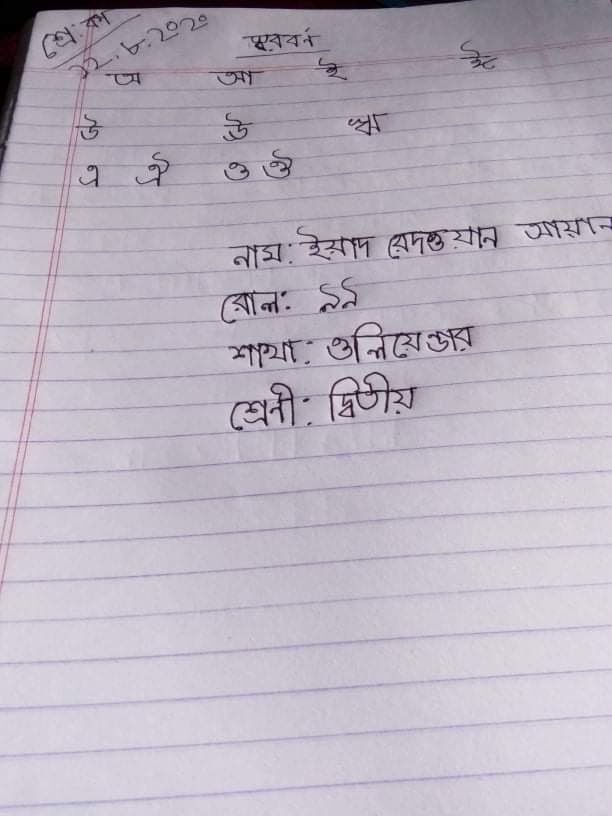 শ্রে: কা
১২.৮.২০২০
স্বরবর্ন
অ আ ই ঈ
উ ঊ ঋ
এ ঐ ও ঔ
নাম: ইয়াদ রেদওয়ান আয়ান
রোল: ৯৯
শাখা: ওলিয়েন্ডার
শ্রেনী: দ্বিতীয়